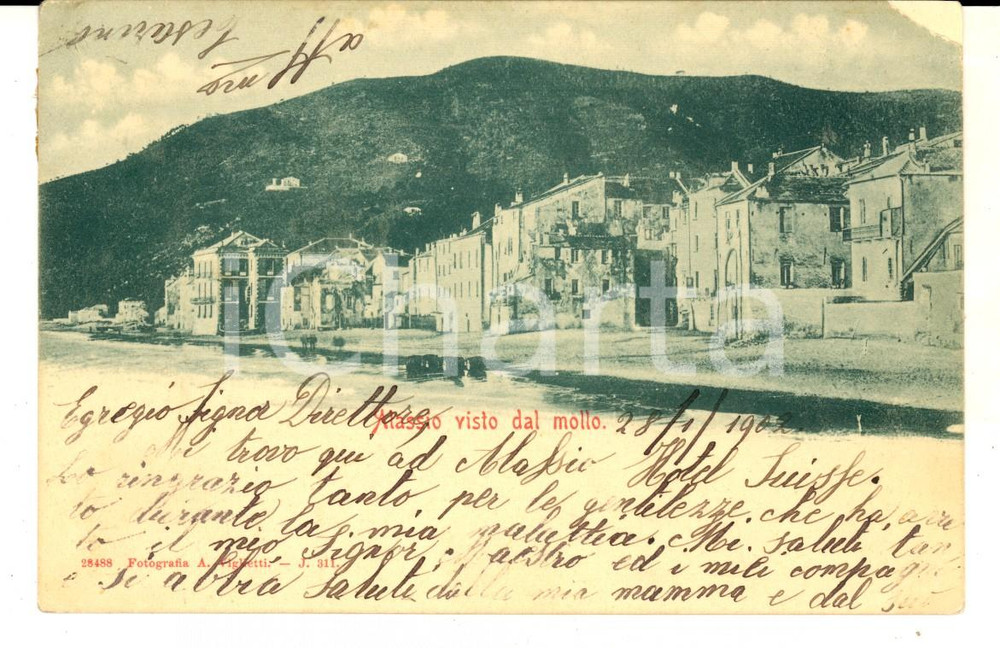 Alassio visto dal mollo. 28/1/1902.
Egregio Signor Direttore,
Mi trovo qui ad Alassio Hotel Suisse.
La ringrazio tanto per le gentilezze che ha avu
to durante la mia malattia. Mi saluti tan
to il mio Signor Maestro ed i miei compagni
Si abbia saluti dalla mia mamma e dal suo
aff
28488 Fotografia A. Viglietti. — J. 311.
iCharta